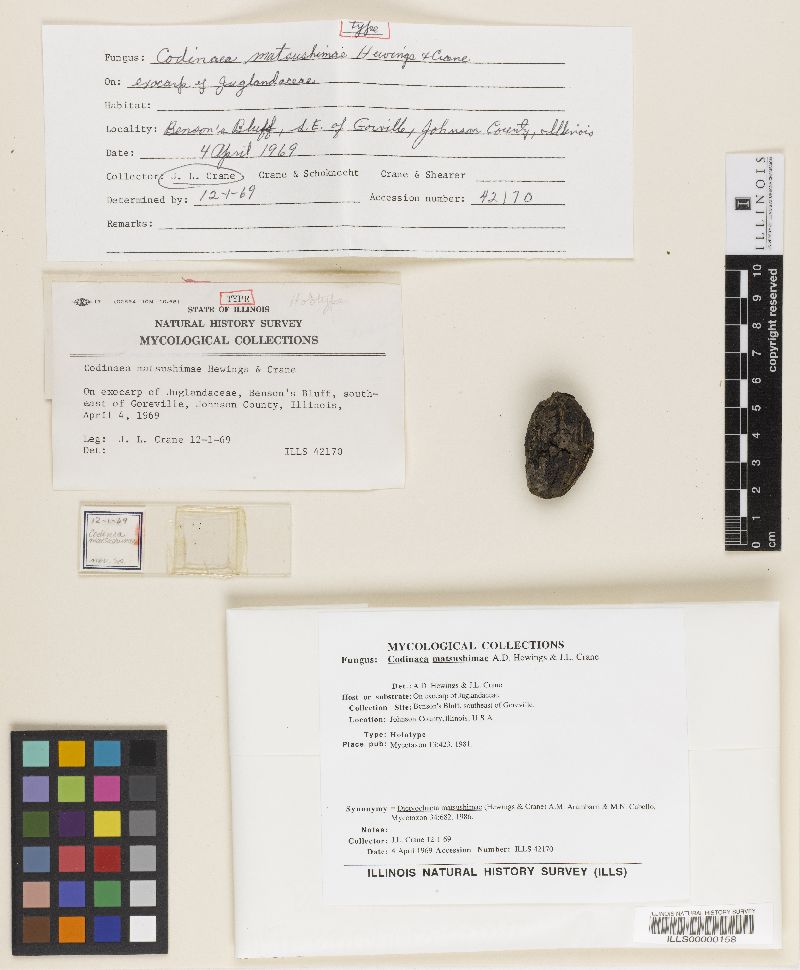 type
Fungus: Codinaea matsushimae Hewings & Crane
On: exocarp of Juglandaceae
Habitat:
Locality: Benson's Bluff, S.E. of Goreville, Johnson County, Illinois
Date: 4 April 1969
Collector: J. L. Crane Crane & Schoknecht Crane & Shearer
Determined by: 12-1-69 Accession number: 42170
Remarks:
TYPE Holotype
STATE OF ILLINOIS
NATURAL HISTORY SURVEY
MYCOLOGICAL COLLECTIONS
Codinaea matsushimae Hewings & Crane
On exocarp of Juglandaceae, Benson's Bluff, south-
east of Goreville, Johnson County, Illinois,
April 4, 1969
Leg: J. L. Crane 12-1-69
Det: ILLS 42170
12-1-69
Codinaea
matsushimae
nov. sp.
MYCOLOGICAL COLLECTIONS
Fungus: Codinaea matsushimae A.D. Hewings & J.L. Crane
Det: A.D. Hewings & J.L. Crane
Host or substrate: On exocarp of Juglandaceae.
Collection Site: Benson's Bluff, southeast of Goreville.
Location: Johnson County, Illinois, U.S.A.
Type: Holotype
Place pub: Mycotaxon 13:423, 1981.
Synonymy = Dictyochaeta matsushimae (Hewings & Crane) A.M. Arambarri & M.N. Cabello,
Mycotaxon 34:682, 1986.
Notes:
Collector: J.L. Crane 12-1-69
Date: 4 April 1969 Accession Number: ILLS 42170
ILLINOIS NATURAL HISTORY SURVEY (ILLS)
ILLINOIS NATURAL HISTORY SURVEY
ILLS00000158
ILLINOIS
copyright reserved
10
9
8
7
6
5
4
3
2
1
0
cm